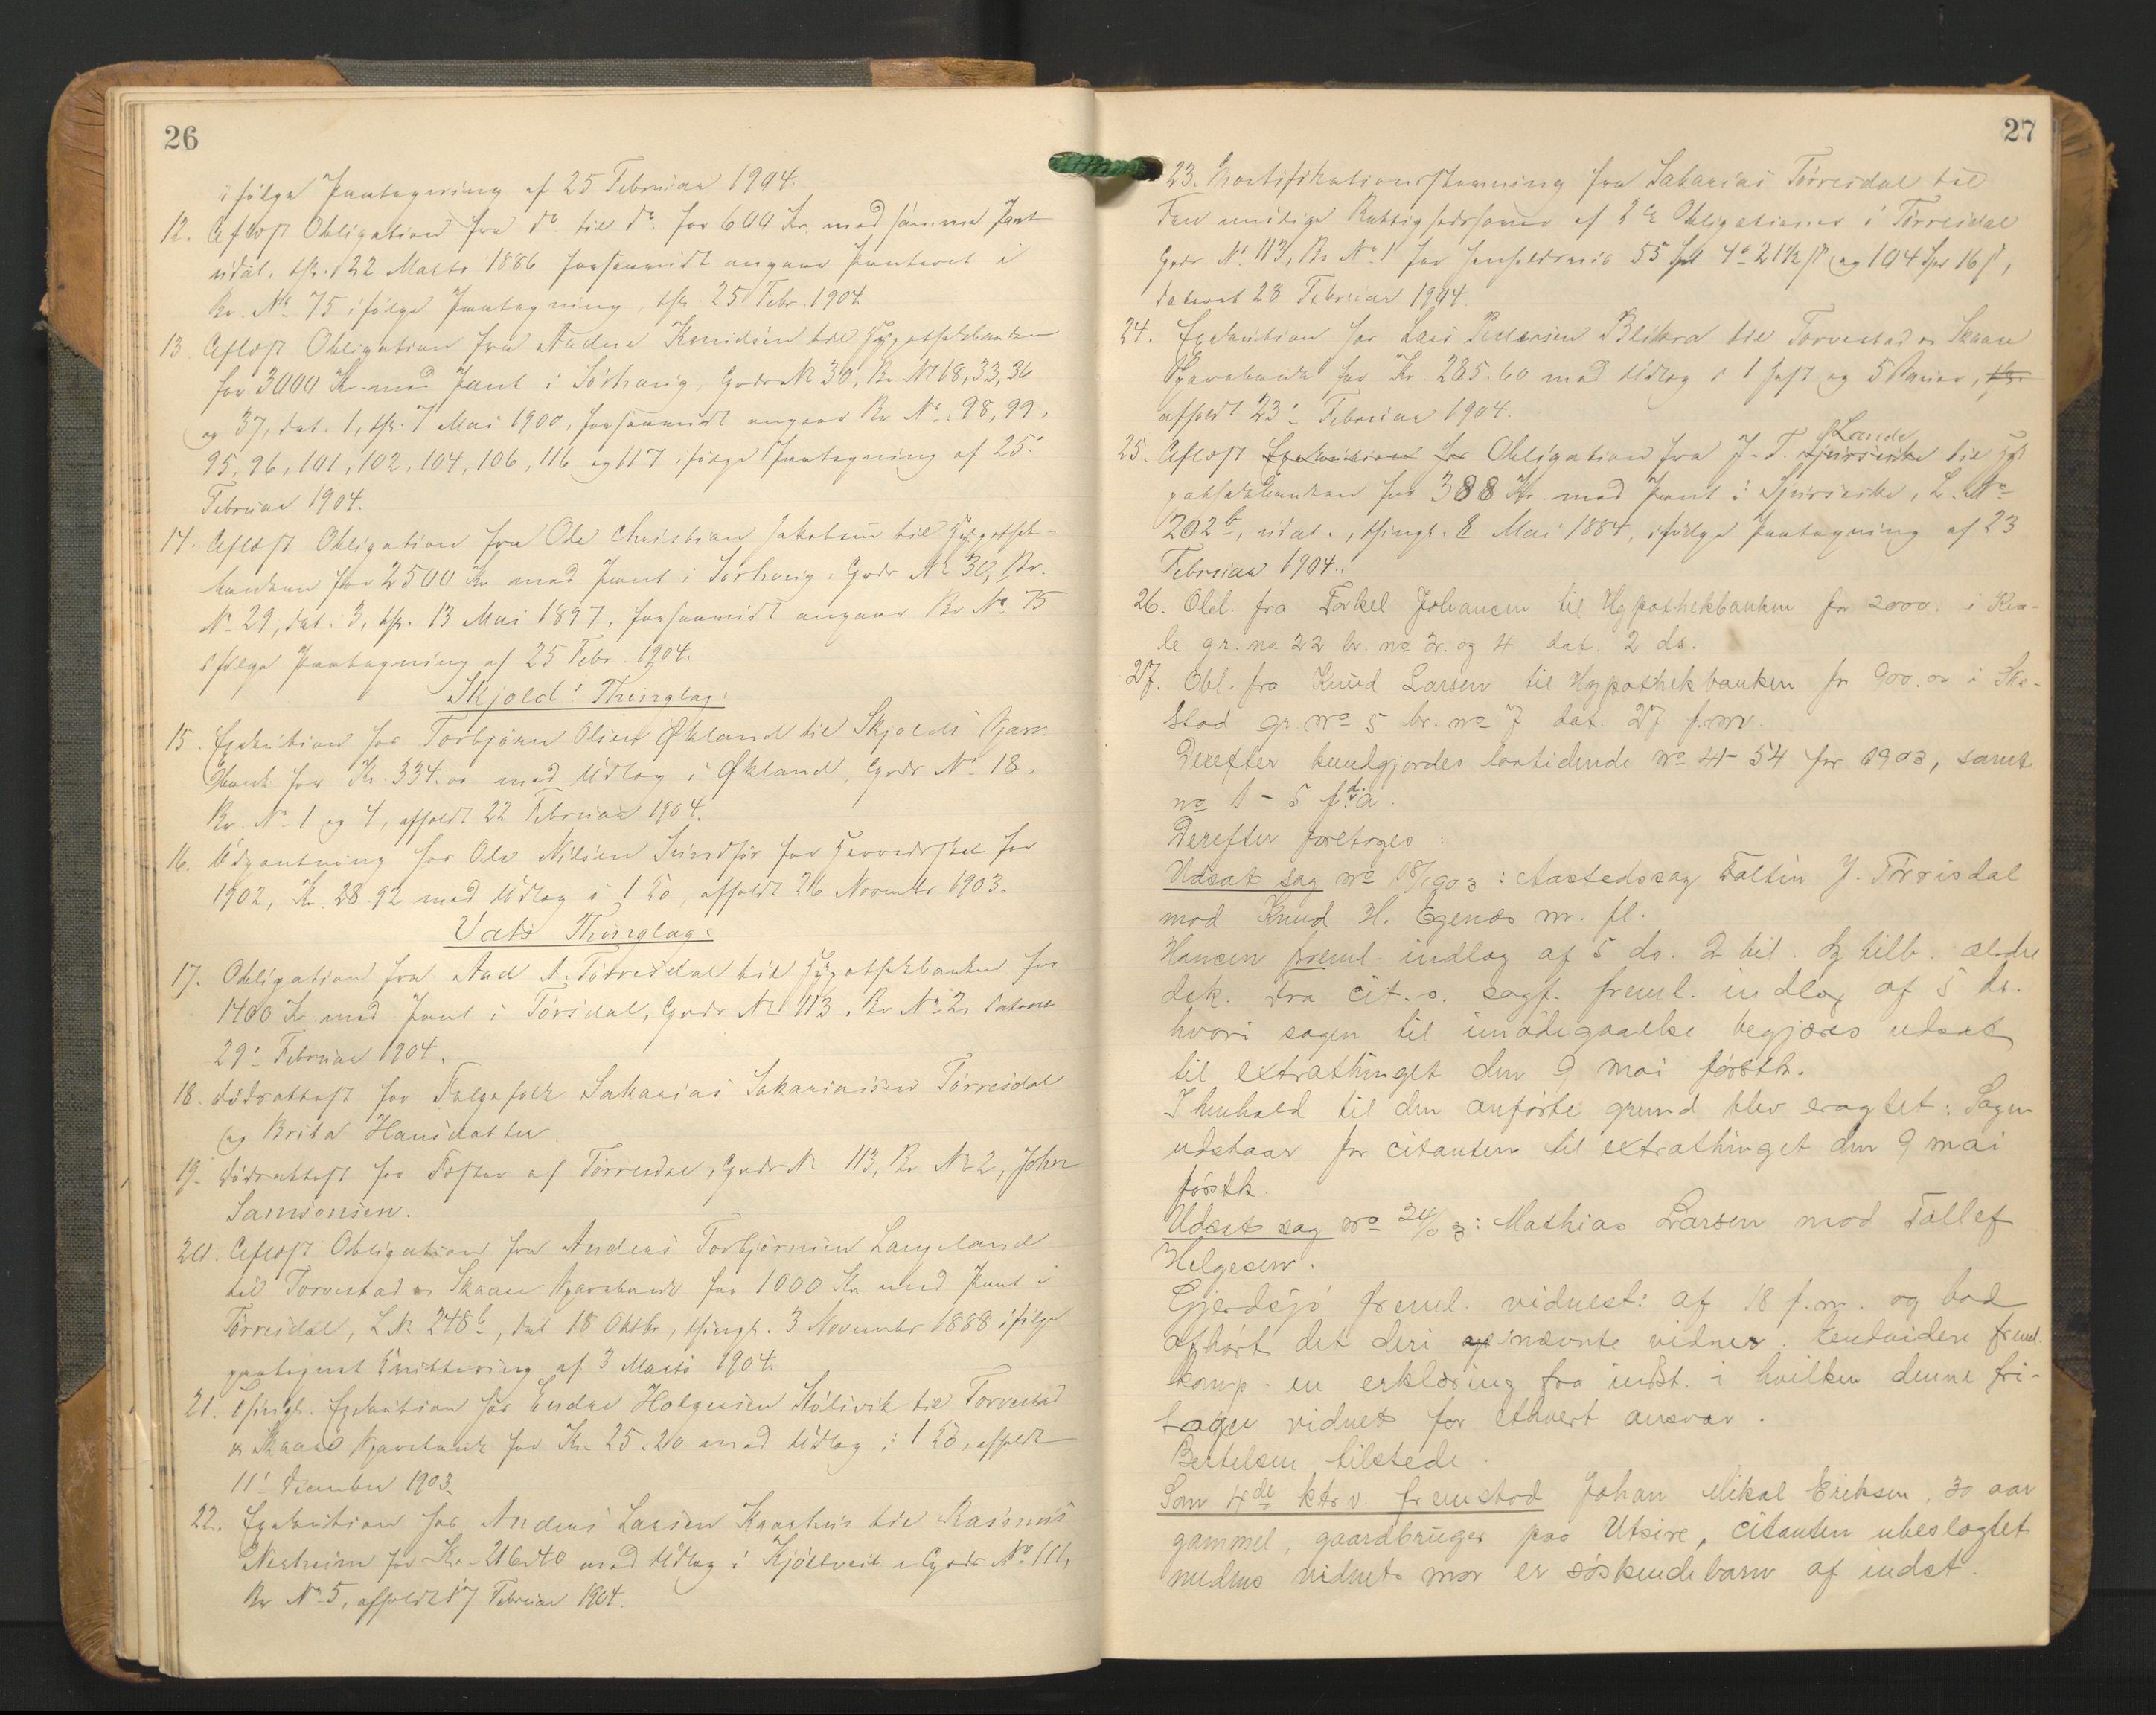 26
ifølge Paategning af 25 Februar 1904.
12. Aflæst Obligation fra do til do for 600 Kr. med samme Pant
udat. thl. 22 Marts 1886 forsaavidt angaar Pantet i
Br. No 75 ifølge Paategning, thl. 25 Febr. 1904.
13. Aflæst Obligation fra Aadne Knudsen til Hypothekbanken
for 3000 Kr. med Pant i Sørhaug, Gaards No 30, Br. No 18, 33, 36
og 37, dat. 1, thl. 7 Mai 1900, forsaavidt angaar Br. No: 98, 99,
95, 96, 101, 102, 104, 106, 116 og 117 ifølge Paategning af 25.
Februar 1904.
14. Aflæst Obligation fra Ole Christian Jakobsen til Hypothek-
banken for 2500 Kr. med Pant i Sørhaug, Gaards No 30, Br.
No 29, dat. 3, thl. 13 Mai 1897, forsaavidt angaar Br. No 75
ifølge Paategning af 25 Febr. 1904.
Skjold's Thinglag:
15. Exekution hos Torbjørn Olsen Økland til Skjolds Spare-
bank for Kr. 334.00 med Udlæg i Økland, Gaards No 18,
Br. No 1 og 4, afholdt 22 Februar 1904.
16. Udpantning hos Ole Nilsen Sundfør for Herredsskat for
1902, Kr. 28.92 med Udlæg i 1 Ko, afholdt 26 November 1903.
Vats Thinglag:
17. Obligation fra Aad A. Tørresdal til Hypothekbanken for
1400 Kr. med Pant i Tørsdal, Gaards No 113, Br. No 2, dateret
29. Februar 1904.
18. Dødsattest for Følgefolk Sakarias Sakariassen Tørresdal
og Brita Hansdatter.
19. Dødsattest for Føster af Tørresdal, Gaards No 113, Br. No 2, John
Samsonsen.
20. Aflæst Obligation fra Anders Torbjørnsen Langeland
til Torvestad & Skaare Sparebank for 1000 Kr. med Pant i
Tørresdal, L. No 248b, dat. 18 Oktbr, thingl. 3 November 1888 ifølge
paategnet Kvittering af 3 Marts 1904.
21. Thingl. Exekution hos Endre Holgersen Stølsvik til Torvestad
& Skaare Sparebank for Kr. 25.20 med Udlæg i 1 Ko, afholdt
11. December 1903.
22. Exekution hos Anders Larsen Kaarhus til Rasmus
Nesheim for Kr. 216.40 med Udlæg i Kjølleveit, Gaards No 111,
Br. No 5, afholdt 17 Februar 1904.
27
23. Mortifikationsstevning fra Sakarias Tørresdal til
den mulige Rettighedshaver af 2de Obligationer i Tørresdal
Gaards No 113, Br. No 1 for henholdsvis 55 Spd 4 21½ ß og 104 Spd 16 ß,
dateret 23 Februar 1904.
24. Exekution hos Lars Pedersen Blikra til Torvestad & Skaare
Sparebank for Kr. 285.60 med Udlæg i 1 Hest og 5 Køer,
afholdt 23. Februar 1904.
25. Aflæst Exekution hos Obligation fra J. T. Sjursvike Lande til Hy-
pothekbanken for 388 Kr. med Pant i Sjursvike, L. No
202b, udat., thingl. 8 Mai 1884, ifølge Paategning af 23
Februar 1904.
26. Obl. fra Torkel Johansen til Hypothekbanken for 2000. i Kva-
le gr. no 22 br. no 3. og 4 dat. 2 ds.
27. Obl. fra Knud Larsen til Hypothekbanken for 900.00 i Ske-
stad gr. no 5 br. no 7 dat. 27 f.m.
Derefter kundgjordes lovtidende no 41-54 for 1903, samt
no 1 - 5 f. d. a.
Derefter foretoges:
Udsat sag no 18/1903: Aastedssag Taltin J. Tørrisdal
mod Knud H. Egenæs m. fl.
Hansen freml. indlæg af 5 ds. 2 bil. og tilb. ældre
dok. Fra cit.s. sagf. freml. indlæg af 5 ds.
hvori sagen til imødegaaelse begjæres udsat
til extrathinget den 9 mai førstk.
I henhold til den anførte grund blev eragtet: Sagen
udstaar for citanten til extrathinget den 9 mai
førstk.
Udsat sag no 24/03: Mathias Larsen mod Tollef
Helgesen.
Gjerdsjø freml. vidnest: af 18 f.m. og bad
afhørt det deri nævnte vidner. Endvidere freml.
komp. en erklæring fra indst. i hvilken denne fri-
tager vidnet for ethvert ansvar.
Bertelsen tilstede.
Som 4de ktr.v. fremstod Johan Mikal Eriksen, 30 aar
gammel, gaardbruger paa Utsire, citanten ubeslægtet
medens vidnets mor er søskendebarn af indst.